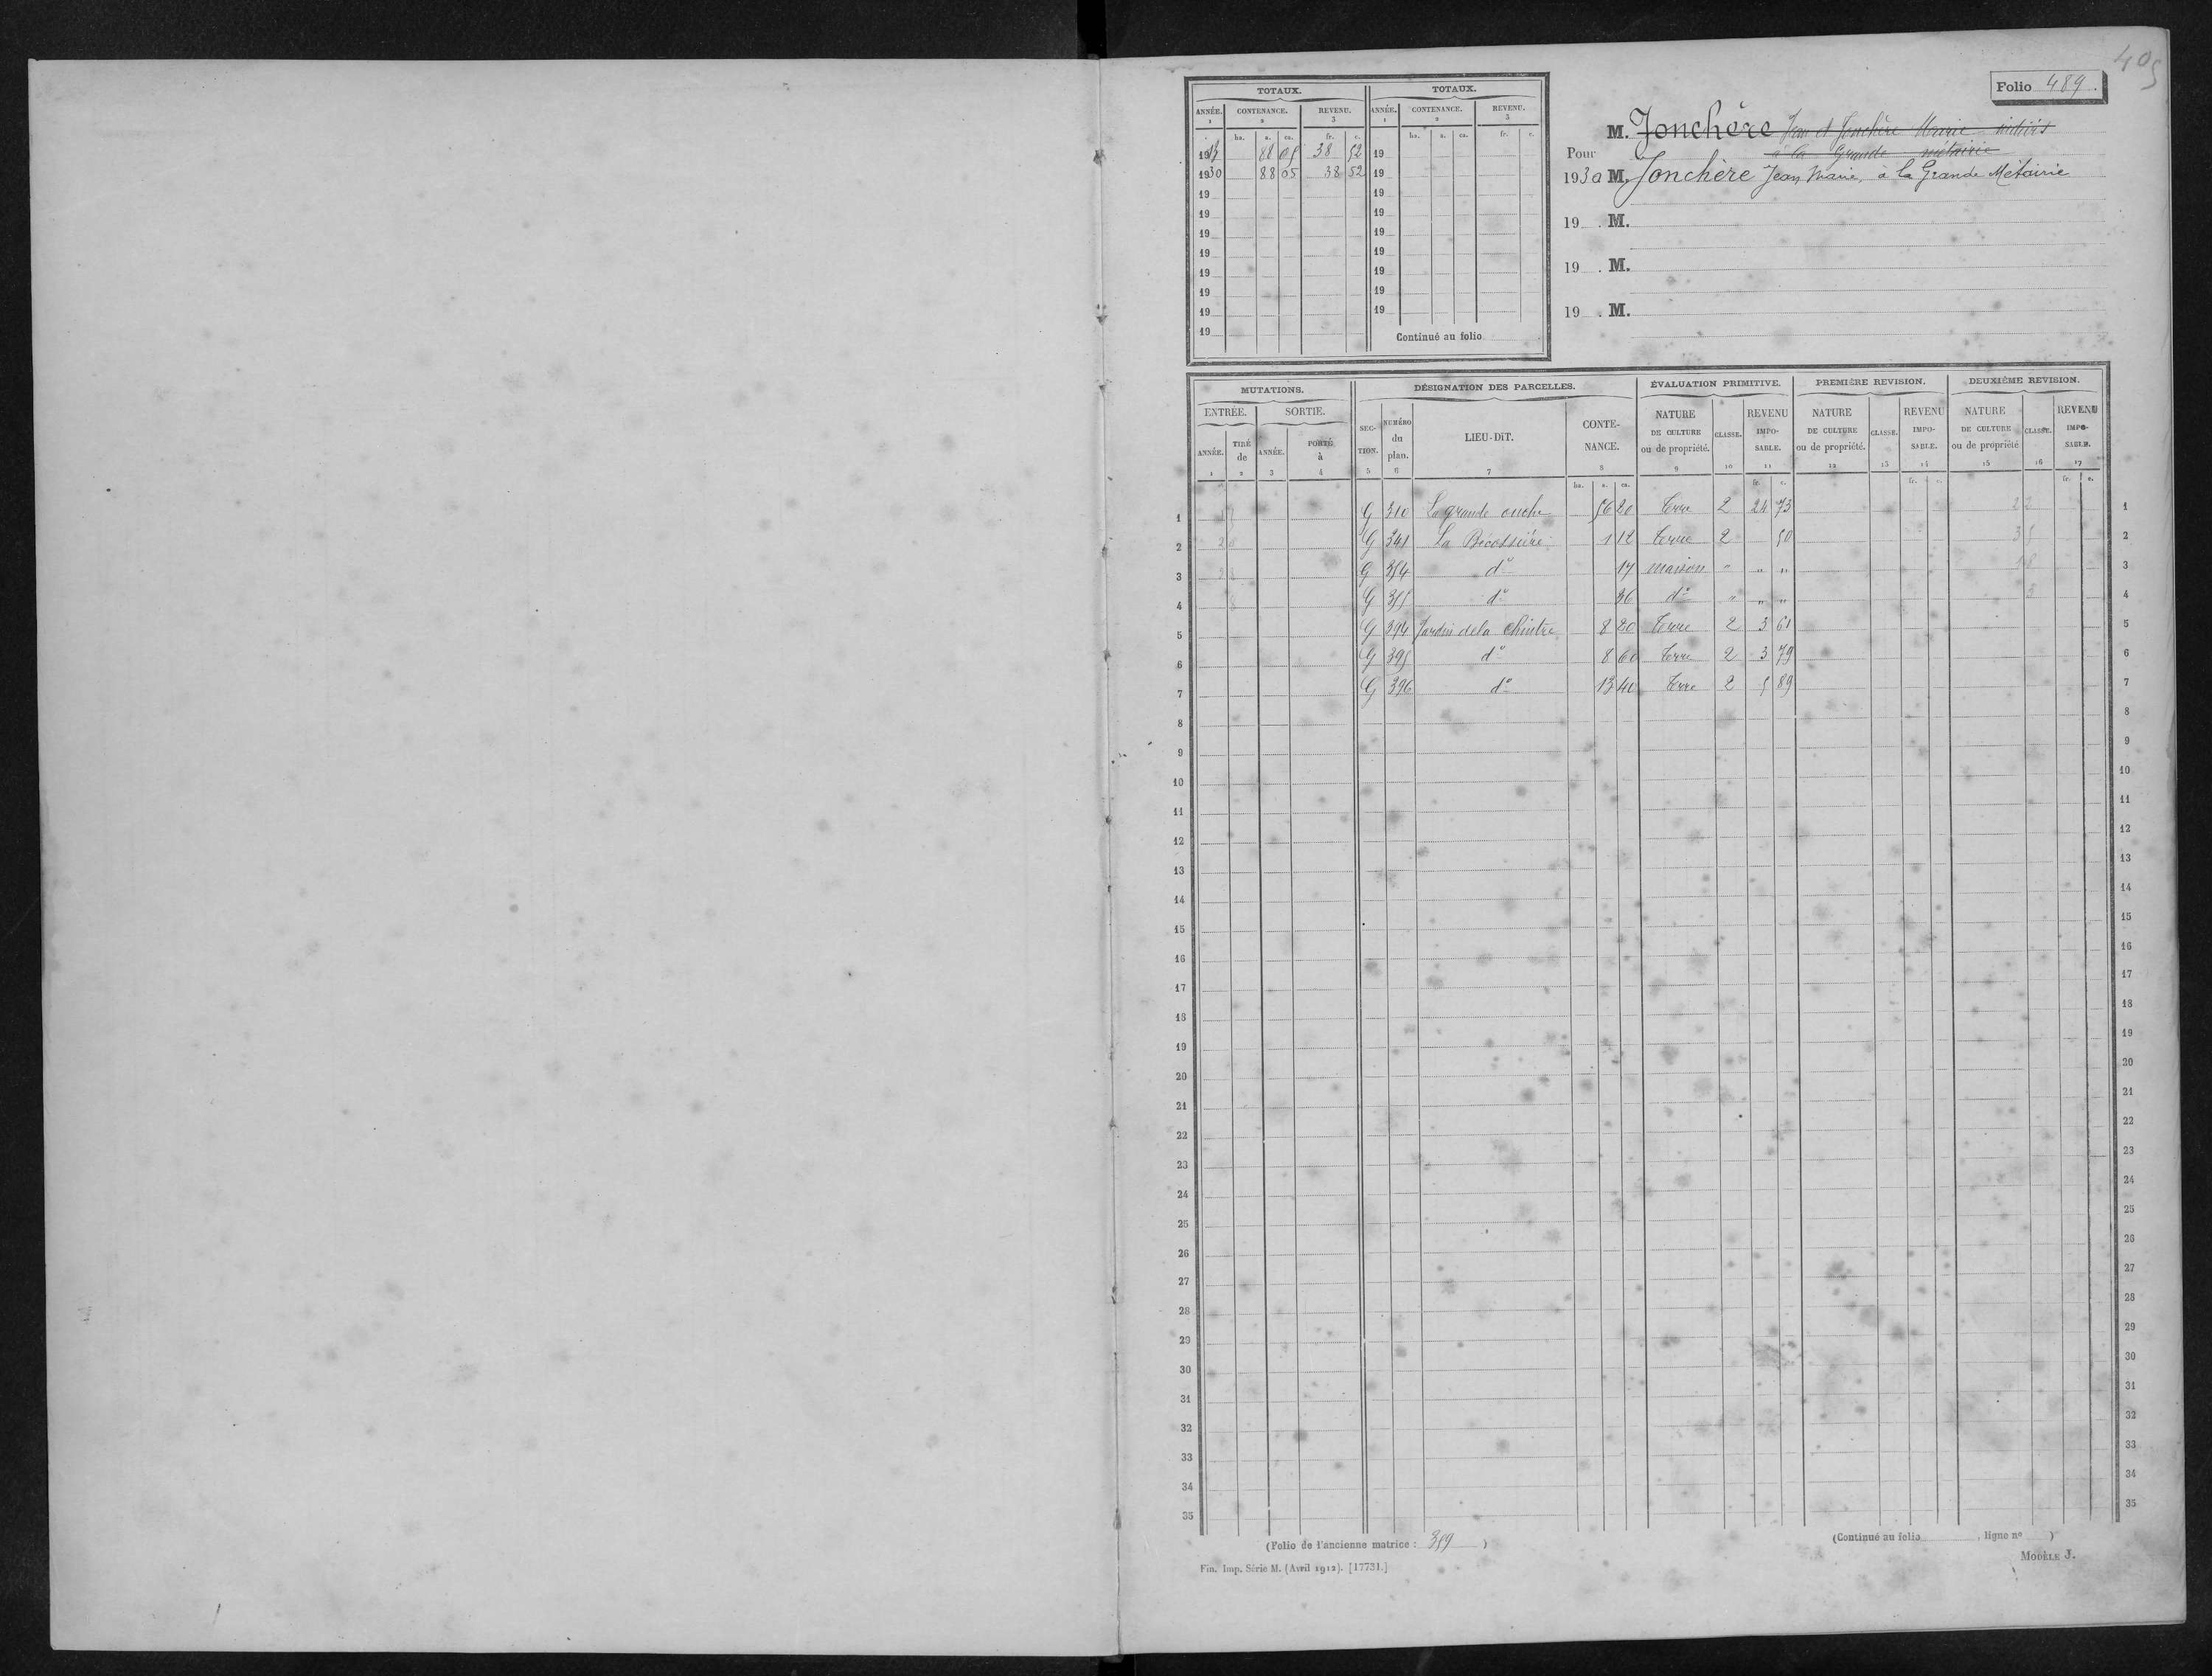 405
Folio 489.
TOTAUX. TOTAUX.
ANNÉE. CONTENANCE. REVENU. ANNÉE. CONTENANCE. REVENU.
1 2 3 1 2 3
ha. a. ca. fr. c. ha. a. ca. fr. c.
19 88 05 38 52 19
1930 88 05 38 52 19
19 19
19 19
19 19
19 19
19 19
19 19
19 19
19 Continué au folio
M. Jonchère Jean et Jonchère Marie indivis
Pour à la Grande métairie
1930 M. Jonchère Jean Marie, à la Grande Métairie
19 . M.
19 . M.
19 . M.
MUTATIONS. DÉSIGNATION DES PARCELLES. ÉVALUATION PRIMITIVE. PREMIÈRE REVISION. DEUXIÈME REVISION.
ENTRÉE. SORTIE. SECTION. NUMÉRO du plan. LIEU-DIT. CONTENANCE. NATURE DE CULTURE ou de propriété. CLASSE. REVENU IMPOSABLE. NATURE DE CULTURE ou de propriété. CLASSE. REVENU IMPOSABLE. NATURE DE CULTURE ou de propriété CLASSE. REVENU IMPOSABLE.
ANNÉE. TIRÉ de ANNÉE. PORTÉ à
1 2 3 4 5 6 7 8 9 10 11 12 13 14 15 16 17
ha. a. ca. fr. c. fr. c. fr. c.
1 G 310 La grande ouche 56 20 Terre 2 24 73 22 1
2 G 341 La Bécossière 1 12 Terre 2 50 38 2
3 G 354 do 17 maison " " " 18 3
4 G 355 do 36 do " " " 3 4
5 G 394 Jardin de la Chintre 8 20 Terre 2 3 61 5
6 G 395 do 8 60 Terre 2 3 79 6
7 G 396 do 13 40 Terre 2 5 89 7
8 8
9 9
10 10
11 11
12 12
13 13
14 14
15 15
16 16
17 17
18 18
19 19
20 20
21 21
22 22
23 23
24 24
25 25
26 26
27 27
28 28
29 29
30 30
31 31
32 32
33 33
34 34
35 35
(Folio de l'ancienne matrice : 359 ) (Continué au folio , ligne n° )
Fin. Imp. Série M. (Avril 1912). [17731.] MODÈLE J.